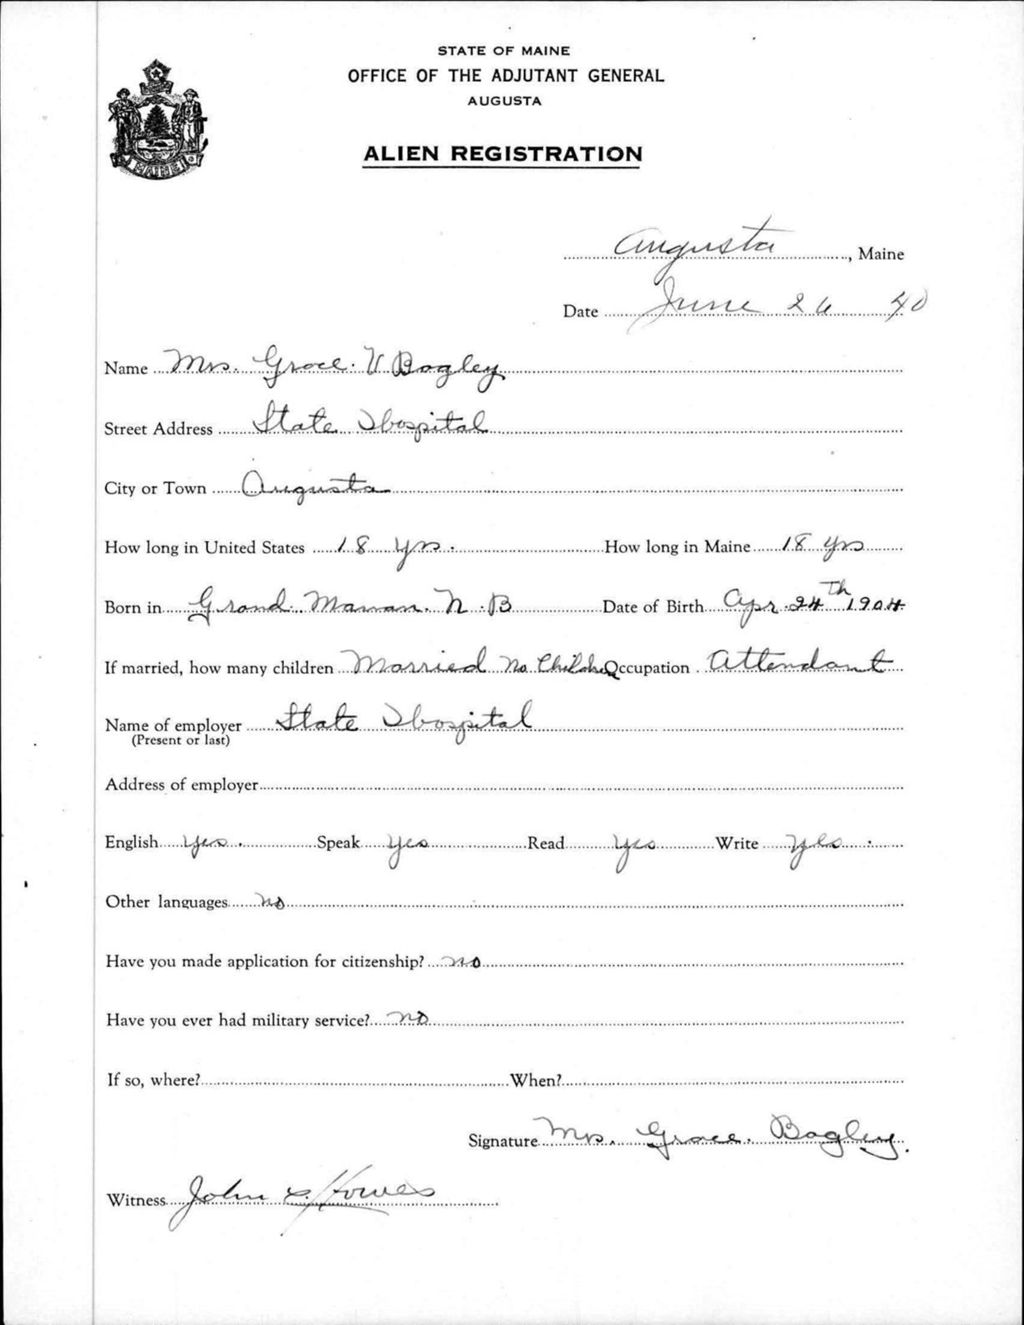 STATE OF MAINE
OFFICE OF THE ADJUTANT GENERAL
AUGUSTA
ALIEN REGISTRATION
MAINE
Augusta, Maine
Date June 26 40
Name Mrs. Grace. V. Bagley
Street Address State Hospital
City or Town Augusta
How long in United States 18 yrs. How long in Maine 18 yrs
Born in Grand Manan. N.B Date of Birth Apr. 24th 1904
If married, how many children Married No Children Occupation Attendant
Name of employer State Hospital
(Present or last)
Address of employer
English yes. Speak yes Read yes Write yes.
Other languages no
Have you made application for citizenship? no
Have you ever had military service? no
If so, where? When?
Signature Mrs. Grace. Bagley.
Witness John Howes